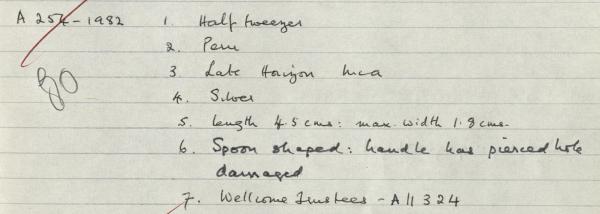 A 254-1982 1. Half tweezer
2. Peru
3. Late Horizon Inca
4. Silver
5. length 4.5 cms: max. width 1.8 cms.
80
6. Spoon shaped: handle has pierced hole
damaged
7. Wellcome Trustees - A 11324